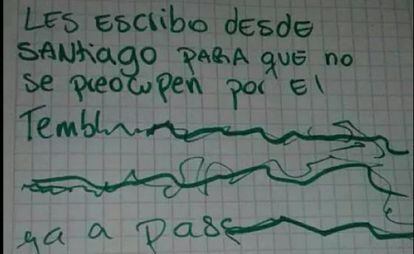 LES Escribo desde
SANtiago PARA quE no
se preocupen por El
Tembl
ya a pasa